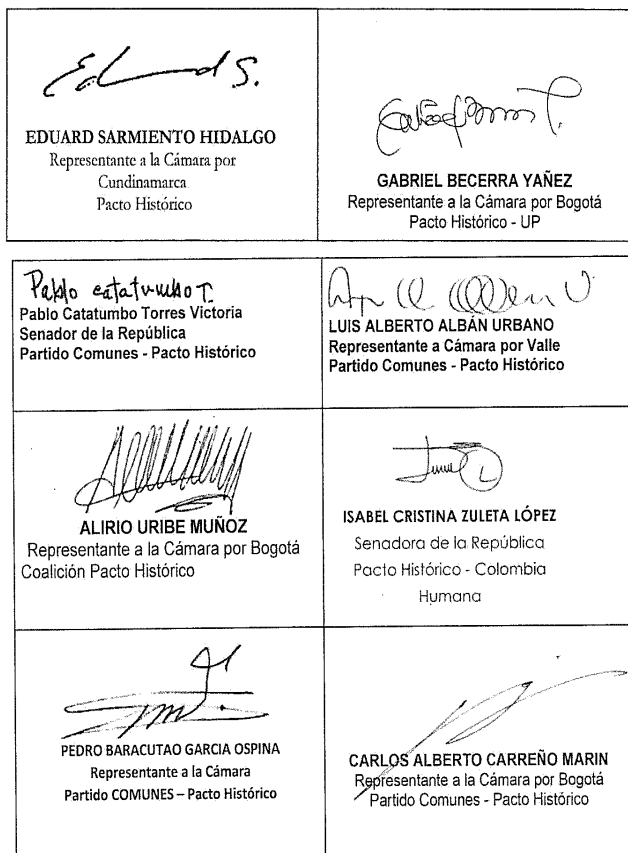 Ed S.
EDUARD SARMIENTO HIDALGO
Representante a la Cámara por
Cundinamarca
Pacto Histórico
GABRIEL BECERRA YAÑEZ
Representante a la Cámara por Bogotá
Pacto Histórico - UP
Pablo catatumbo T.
Pablo Catatumbo Torres Victoria
Senador de la República
Partido Comunes - Pacto Histórico
LUIS ALBERTO ALBÁN URBANO
Representante a Cámara por Valle
Partido Comunes - Pacto Histórico
ALIRIO URIBE MUÑOZ
Representante a la Cámara por Bogotá
Coalición Pacto Histórico
ISABEL CRISTINA ZULETA LÓPEZ
Senadora de la República
Pacto Histórico - Colombia
Humana
PEDRO BARACUTAO GARCIA OSPINA
Representante a la Cámara
Partido COMUNES – Pacto Histórico
CARLOS ALBERTO CARREÑO MARIN
Representante a la Cámara por Bogotá
Partido Comunes - Pacto Histórico